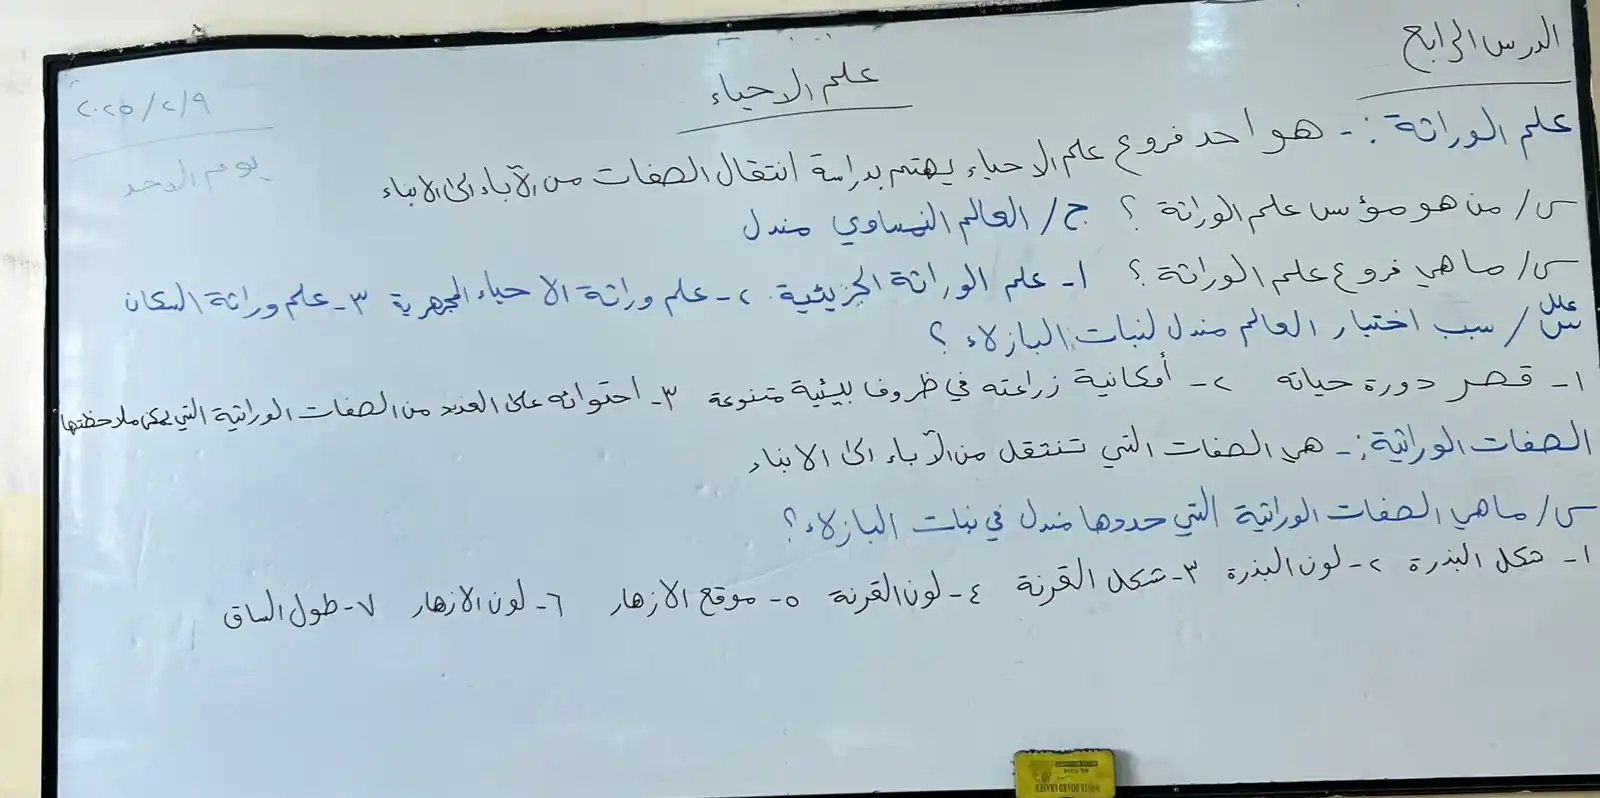 الدرس الرابع
علم الاحياء
٢٠٢٥/٢/٩
يوم الاحد
علم الوراثة :- هو احد فروع علم الاحياء يهتم بدراسة انتقال الصفات من الآباء الى الابناء
س/ من هو مؤسس علم الوراثة ؟ ج/ العالم النمساوي مندل
س/ ما هي فروع علم الوراثة ؟ ١- علم الوراثة الجزيئية ٢- علم وراثة الاحياء المجهرية ٣- علم وراثة السكان
علل
س/ سبب اختبار العالم مندل لنبات البازلاء ؟
١- قصر دورة حياته ٢- أمكانية زراعته في ظروف بيئية متنوعة ٣- احتوائه على العديد من الصفات الوراثية التي يمكن ملاحظتها
الصفات الوراثية :- هي الصفات التي تنتقل من الآباء الى الابناء
س/ ماهي الصفات الوراثية التي حددها مندل في نبات البازلاء ؟
١- شكل البذرة ٢- لون البذرة ٣- شكل القرنة ٤- لون القرنة ٥- موقع الازهار ٦- لون الازهار ٧- طول الساق
WHITE BOARD ERASER